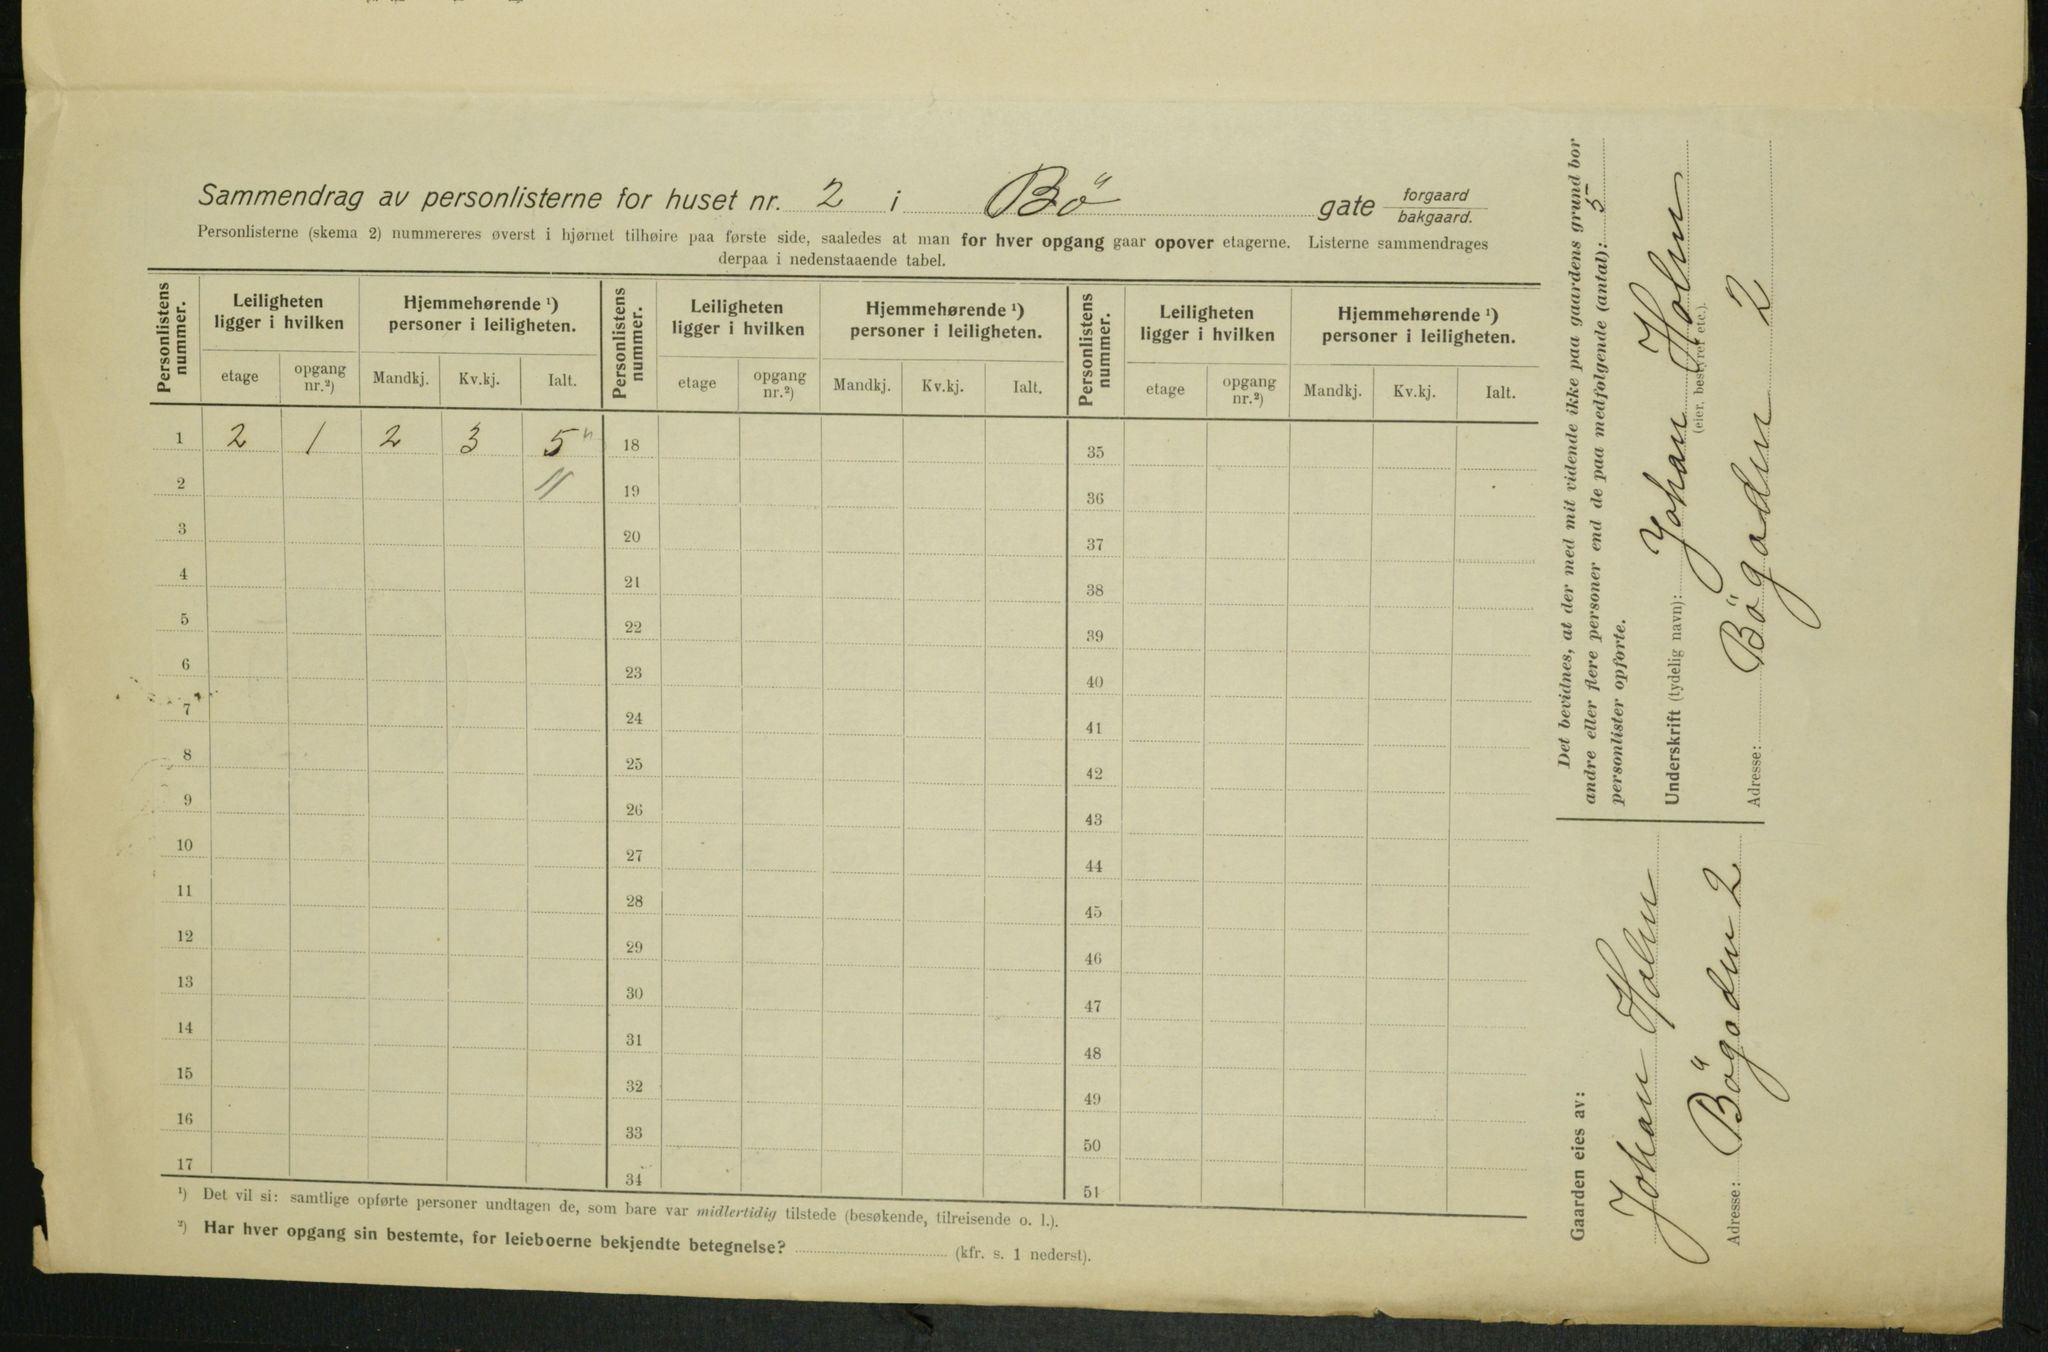 Sammendrag av personlisterne for huset nr. 2 i Bö gate forgaard bakgaard.
Personlisterne (skema 2) nummereres øverst i hjørnet tilhøire paa første side, saaledes at man for hver opgang gaar opover etagerne. Listerne sammendrages
derpaa i nedenstaaende tabel.
Personlistens nummer. Leiligheten ligger i hvilken Hjemmehørende ¹) personer i leiligheten. Personlistens nummer. Leiligheten ligger i hvilken Hjemmehørende ¹) personer i leiligheten. Personlistens nummer. Leiligheten ligger i hvilken Hjemmehørende ¹) personer i leiligheten.
etage opgang nr.²) Mandkj. Kv.kj. Ialt. etage opgang nr.²) Mandkj. Kv.kj. Ialt. etage opgang nr.²) Mandkj. Kv.kj. Ialt.
1 2 1 2 3 5 18 35
2 19 36
3 20 37
4 21 38
5 22 39
6 23 40
7 24 41
8 25 42
9 26 43
10 27 44
11 28 45
12 29 46
13 30 47
14 31 48
15 32 49
16 33 50
17 34 51
¹) Det vil si: samtlige opførte personer undtagen de, som bare var midlertidig tilstede (besøkende, tilreisende o. l.).
²) Har hver opgang sin bestemte, for leieboerne bekjendte betegnelse? (kfr. s. 1 nederst).
Det bevidnes, at der med mit vidende ikke paa gaardens grund bor
andre eller flere personer end de paa medfolgende (antal): 5
personlister opforte.
Underskrift (tydelig navn): Johan Holm
(eier, bestyrer etc.).
Adresse: Bögaden 2
Gaarden eies av:
Johan Holm
Adresse: Bögaden 2